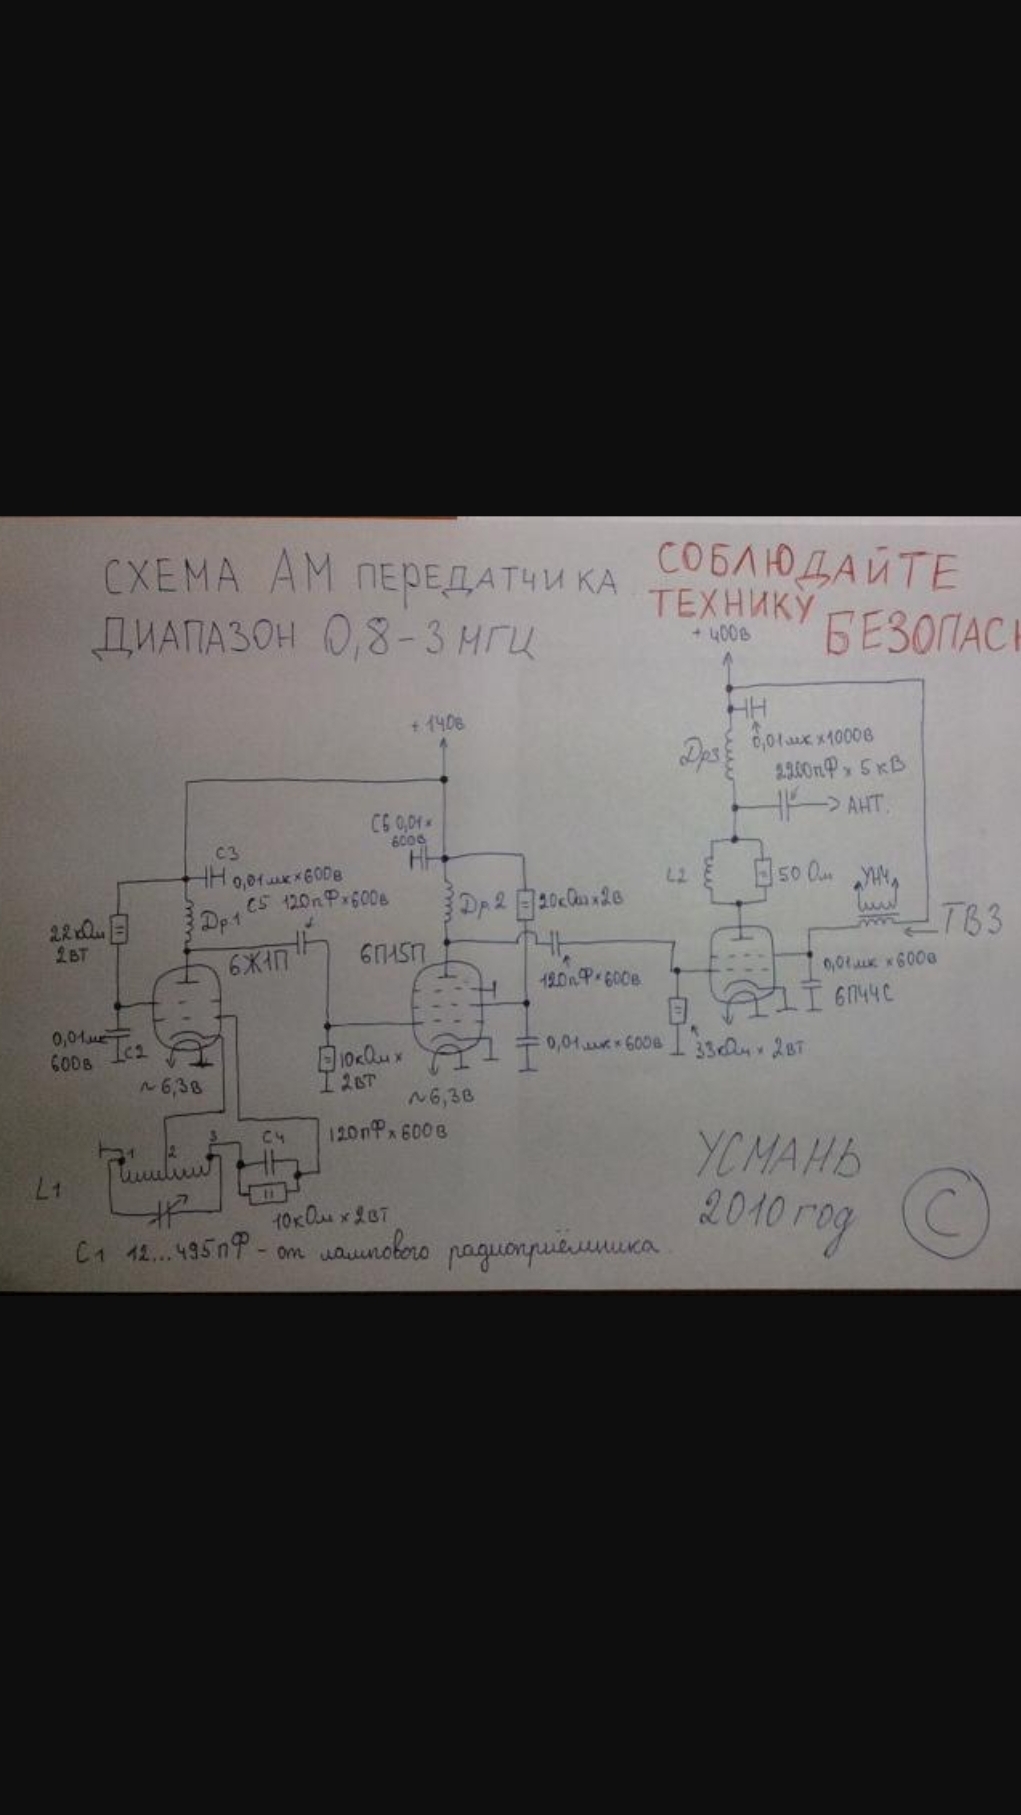 СХЕМА АМ ПЕРЕДАТЧИКА
ДИАПАЗОН 0,8-3 МГЦ
СОБЛЮДАЙТЕ
ТЕХНИКУ
БЕЗОПАСН
+ 400В
0,01мк×1000В
Др3
2200пФ × 5кВ
АНТ.
+ 140В
С6 0,01×
600В
С3
0,01мк×600В
С5 120пФ×600В
22кОм
2ВТ
Др1
6Ж1П
6П15П
Др2
20кОм×2В
L2
50 Ом
УНЧ
ТВЗ
120пФ×600В
0,01мк×600В
6П44С
0,01мк
600В
С2
~6,3В
10кОм×
2ВТ
~6,3В
0,01мк×600В
33кОм × 2ВТ
1
2
3
С4
120пФ×600В
L1
10кОм×2ВТ
С1 12...495пФ - от лампового радиоприёмника.
УСМАНЬ
2010 год
С